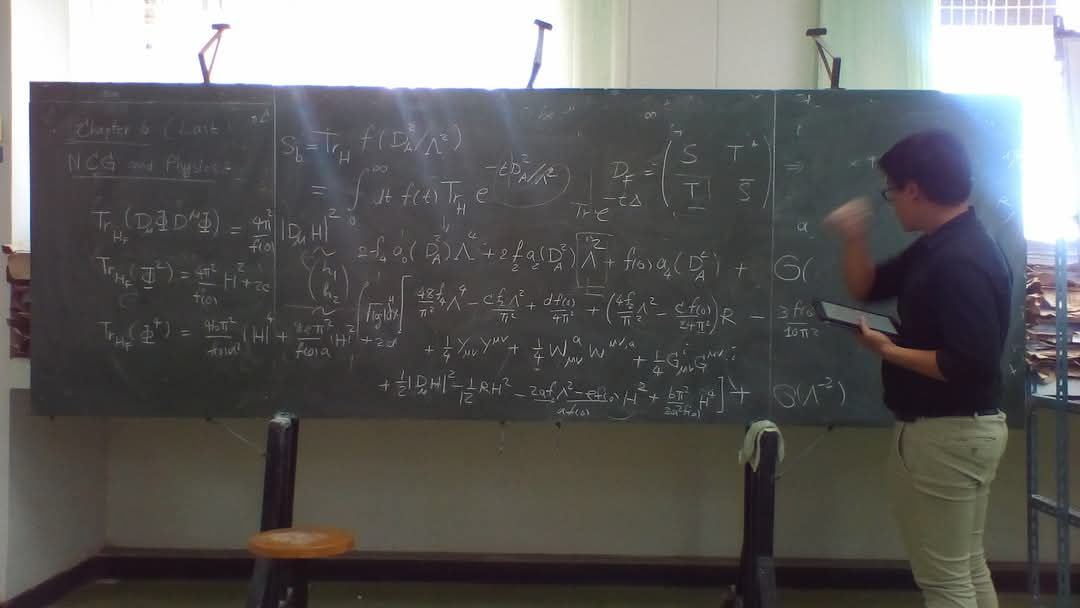 Chapter 6 (Last)
NCG and Physics.
Tr_{H_F}(D_μΦD^μΦ) = 4π²/f(0) |D_μH|²
Tr_{H_F}(Φ²) = 4π²/f(0) H² + 2c
Tr_{H_F}(Φ⁴) =
S_b = Tr_H f(D_A²/Λ²)
= ∫_0^∞ dt f(t) Tr_H e^{-tD_A²/Λ²}
Tr e^{-tΔ}
D_F = (S T* T S̄) ⇒
(h_1 h_2)
2f_4 a_0(D_A²)Λ⁴ + 2f_2 a_2(D_A²)Λ² + f(0) a_4(D_A²) + O(
∫√|g| d⁴x [48f_4/π² Λ⁴ − cf_2/π² Λ² + df(0)/4π² + (4f_2/π² Λ² − cf(0)/24π²)R − 3f(0)/10π²
+ 1/4 Y_{μν}Y^{μν} + 1/4 W^a_{μν}W^{μν,a} + 1/4 G^i_{μν}G^{μν,i}
+ 1/2|D_μH|² − 1/12 RH² − (2af_2Λ² − ef(0))/af(0) H² + bπ²/2a²f(0) H⁴] + O(Λ^{-2})